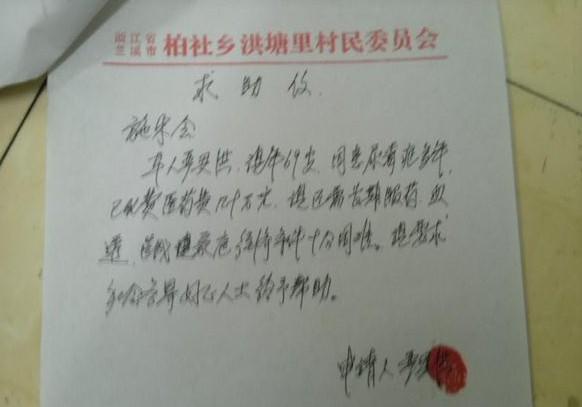 浙江省
兰溪市
柏社乡洪塘里村民委员会
求助信
施乐会
本人严 洪，现年69岁，因患尿毒症多年，
已花费医药费几十万元，现还需长期服药，血
透，造成 家庭经济条件十分困难。现要求
社会各界好心人士给予帮助。
申请人 严